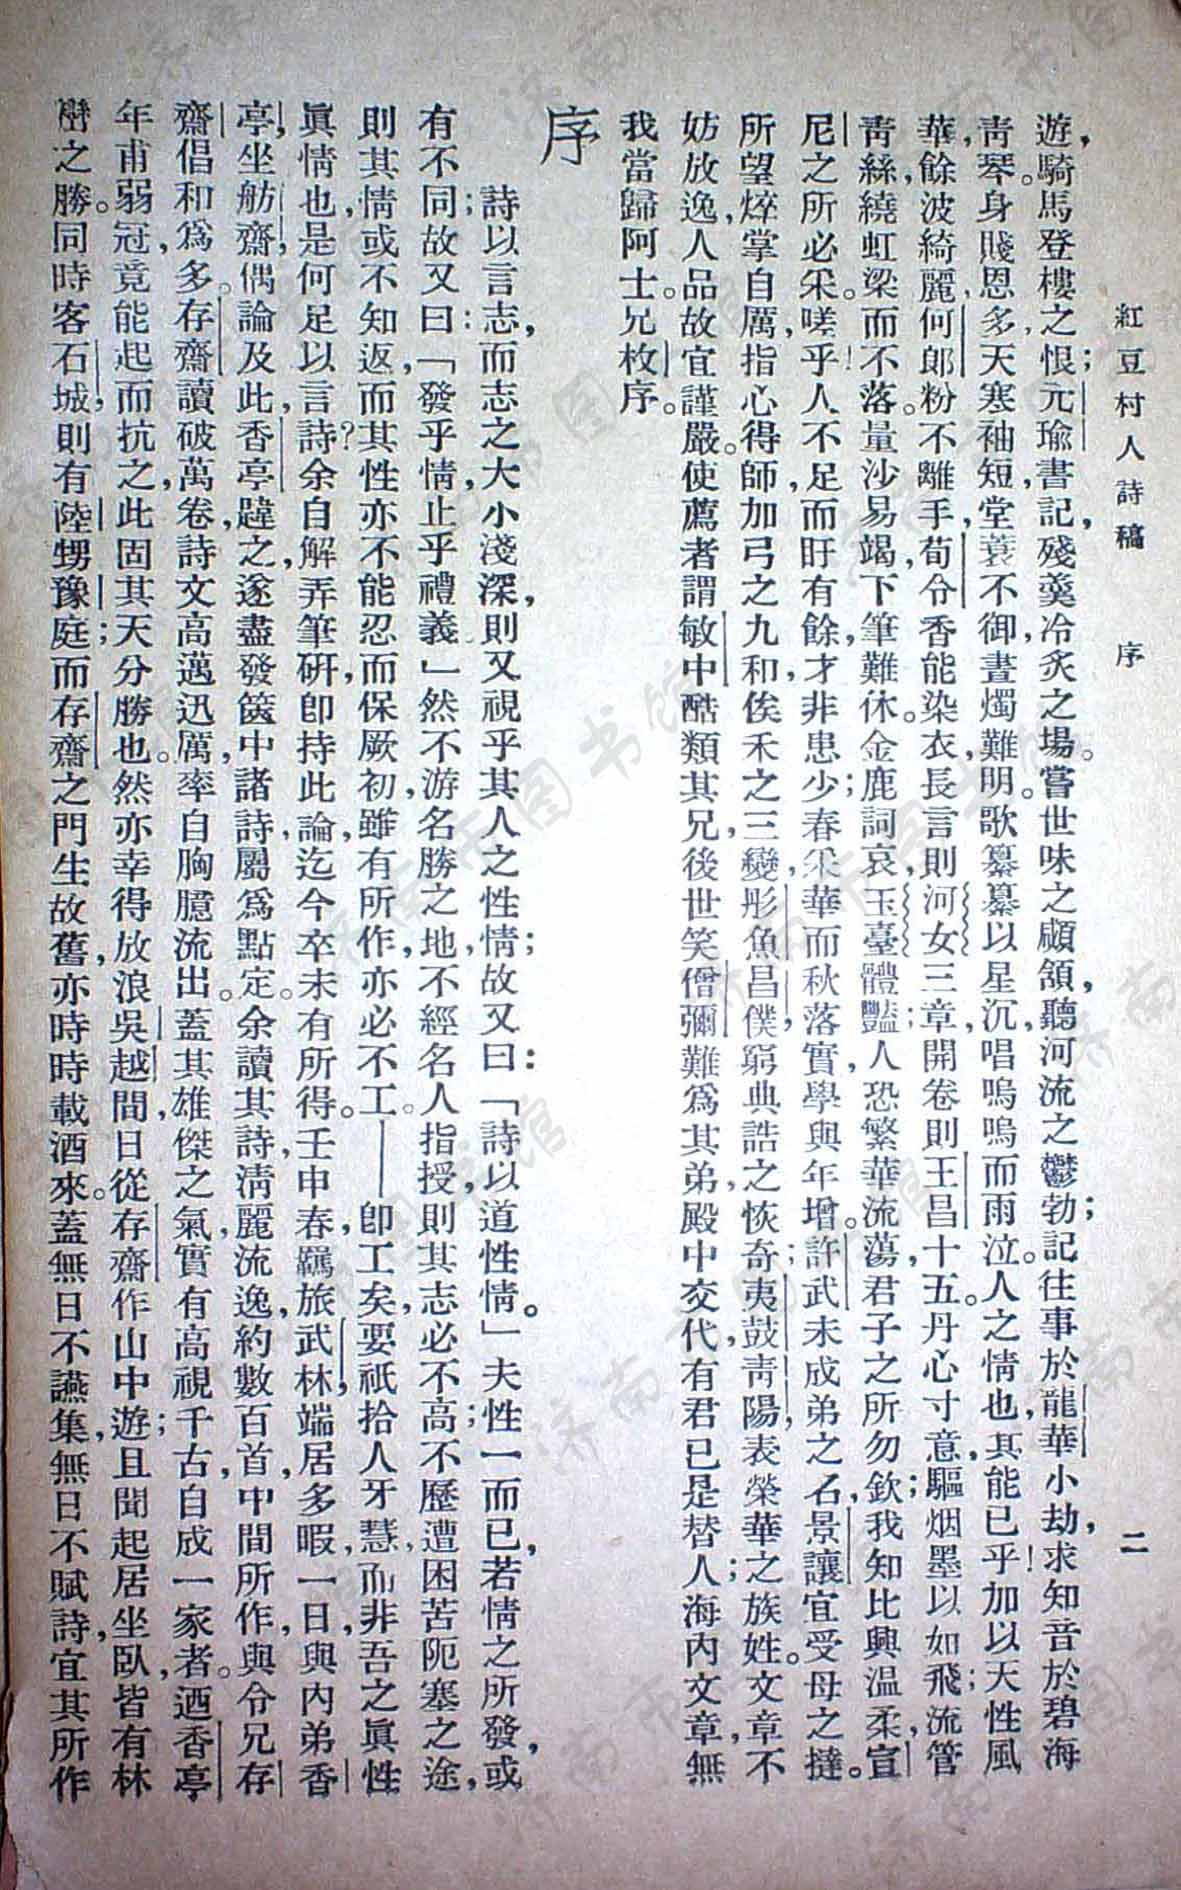 紅豆村人詩稿　序　二
遊，騎馬登樓之恨；元瑜書記，殘羹冷炙之場。嘗世味之顑頷，聽河流之鬱勃；記往事於龍華小劫，求知音於碧海
青琴。身賤恩多，天寒袖短，堂蓑不御，晝燭難明。歌纂纂以星沉，唱嗚嗚而雨泣。人之情也，其能已乎！加以天性風
華，餘波綺麗，何郎粉不離手，荀令香能染衣，長言則河女三章，開卷則王昌十五。丹心寸意，驅烟墨以如飛；流管
青絲，繞虹梁而不落。量沙易竭，下筆難休。金鹿詞哀，玉臺體豔；人恐繁華流蕩，君子之所勿欽；我知比興溫柔，宣
尼之所必采。嗟乎！人不足而盱有餘，才非患少；春采華而秋落實，學與年增。許武未成弟之名，景讓宜受母之撻。
所望焠掌自厲，指心得師，加弓之九和，俟禾之三變，彤魚昌僕，窮典誥之恢奇；夷鼓青陽，表榮華之族姓。文章不
妨放逸，人品故宜謹嚴。使薦者謂敏中酷類其兄，後世笑僧彌難爲其弟，殿中交代，有君已是替人；海內文章，無
我當歸阿士。兄枚序。
序
詩以言志，而志之大小淺深，則又視乎其人之性情；故又曰：「詩以道性情。」夫性一而已，若情之所發，或
有不同；故又曰：「發乎情，止乎禮義」然不游名勝之地，不經名人指授，則其志必不高；不歷遭困苦阨塞之途，
則其情或不知返，而其性亦不能忍而保厥初，雖有所作，亦必不工。——卽工矣，要祇拾人牙慧，而非吾之眞性
眞情也，是何足以言詩？余自解弄筆研，卽持此論，迄今卒未有所得。壬申春，羈旅武林，端居多暇，一日，與內弟香
亭，坐舫齋，偶論及此，香亭韙之，遂盡發篋中諸詩，屬爲點定。余讀其詩，淸麗流逸，約數百首，中間所作，與令兄存
齋倡和爲多。存齋讀破萬卷，詩文高邁迅厲，率自胸臆流出。蓋其雄傑之氣，實有高視千古，自成一家者。迺香亭
年甫弱冠，竟能起而抗之，此固其天分勝也。然亦幸得放浪吳越間，日從存齋作山中遊；且聞起居坐臥，皆有林
巒之勝。同時客石城，則有陸甥豫庭；而存齋之門生故舊，亦時時載酒來。蓋無日不讌集，無日不賦詩，宜其所作